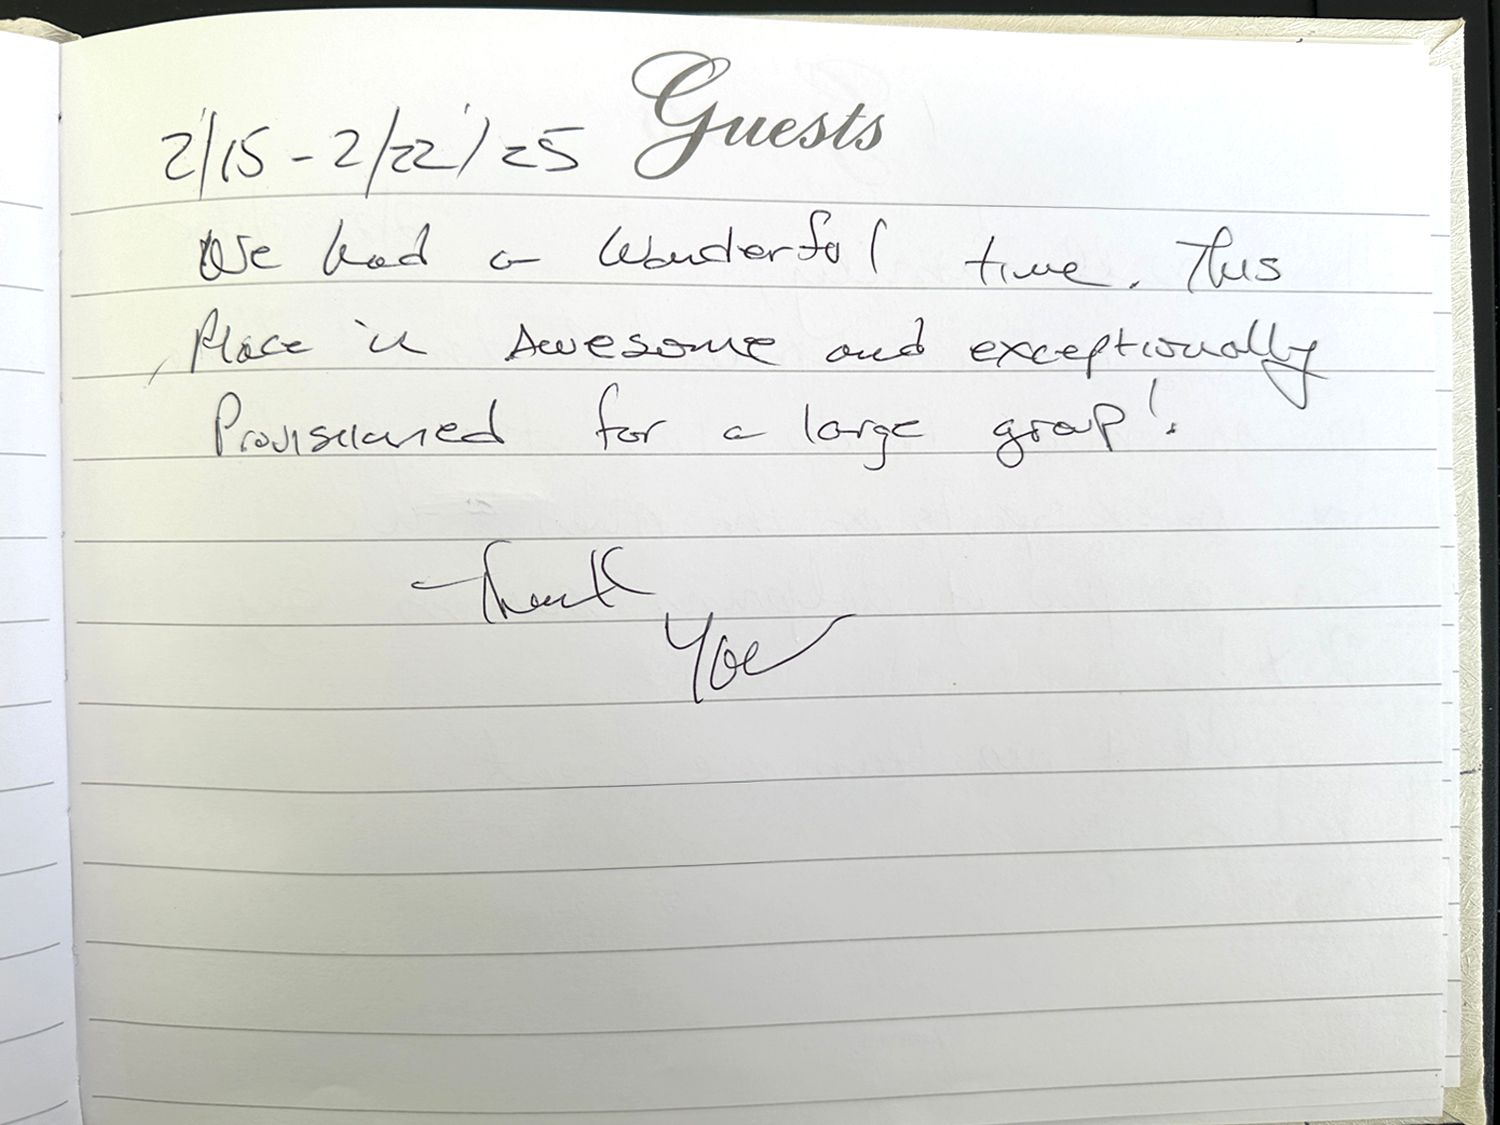 Guests
2/15 - 2/22/25
We had a wonderful time. This
Place is Awesome and exceptionally
Provisioned for a large group!
Thank
You